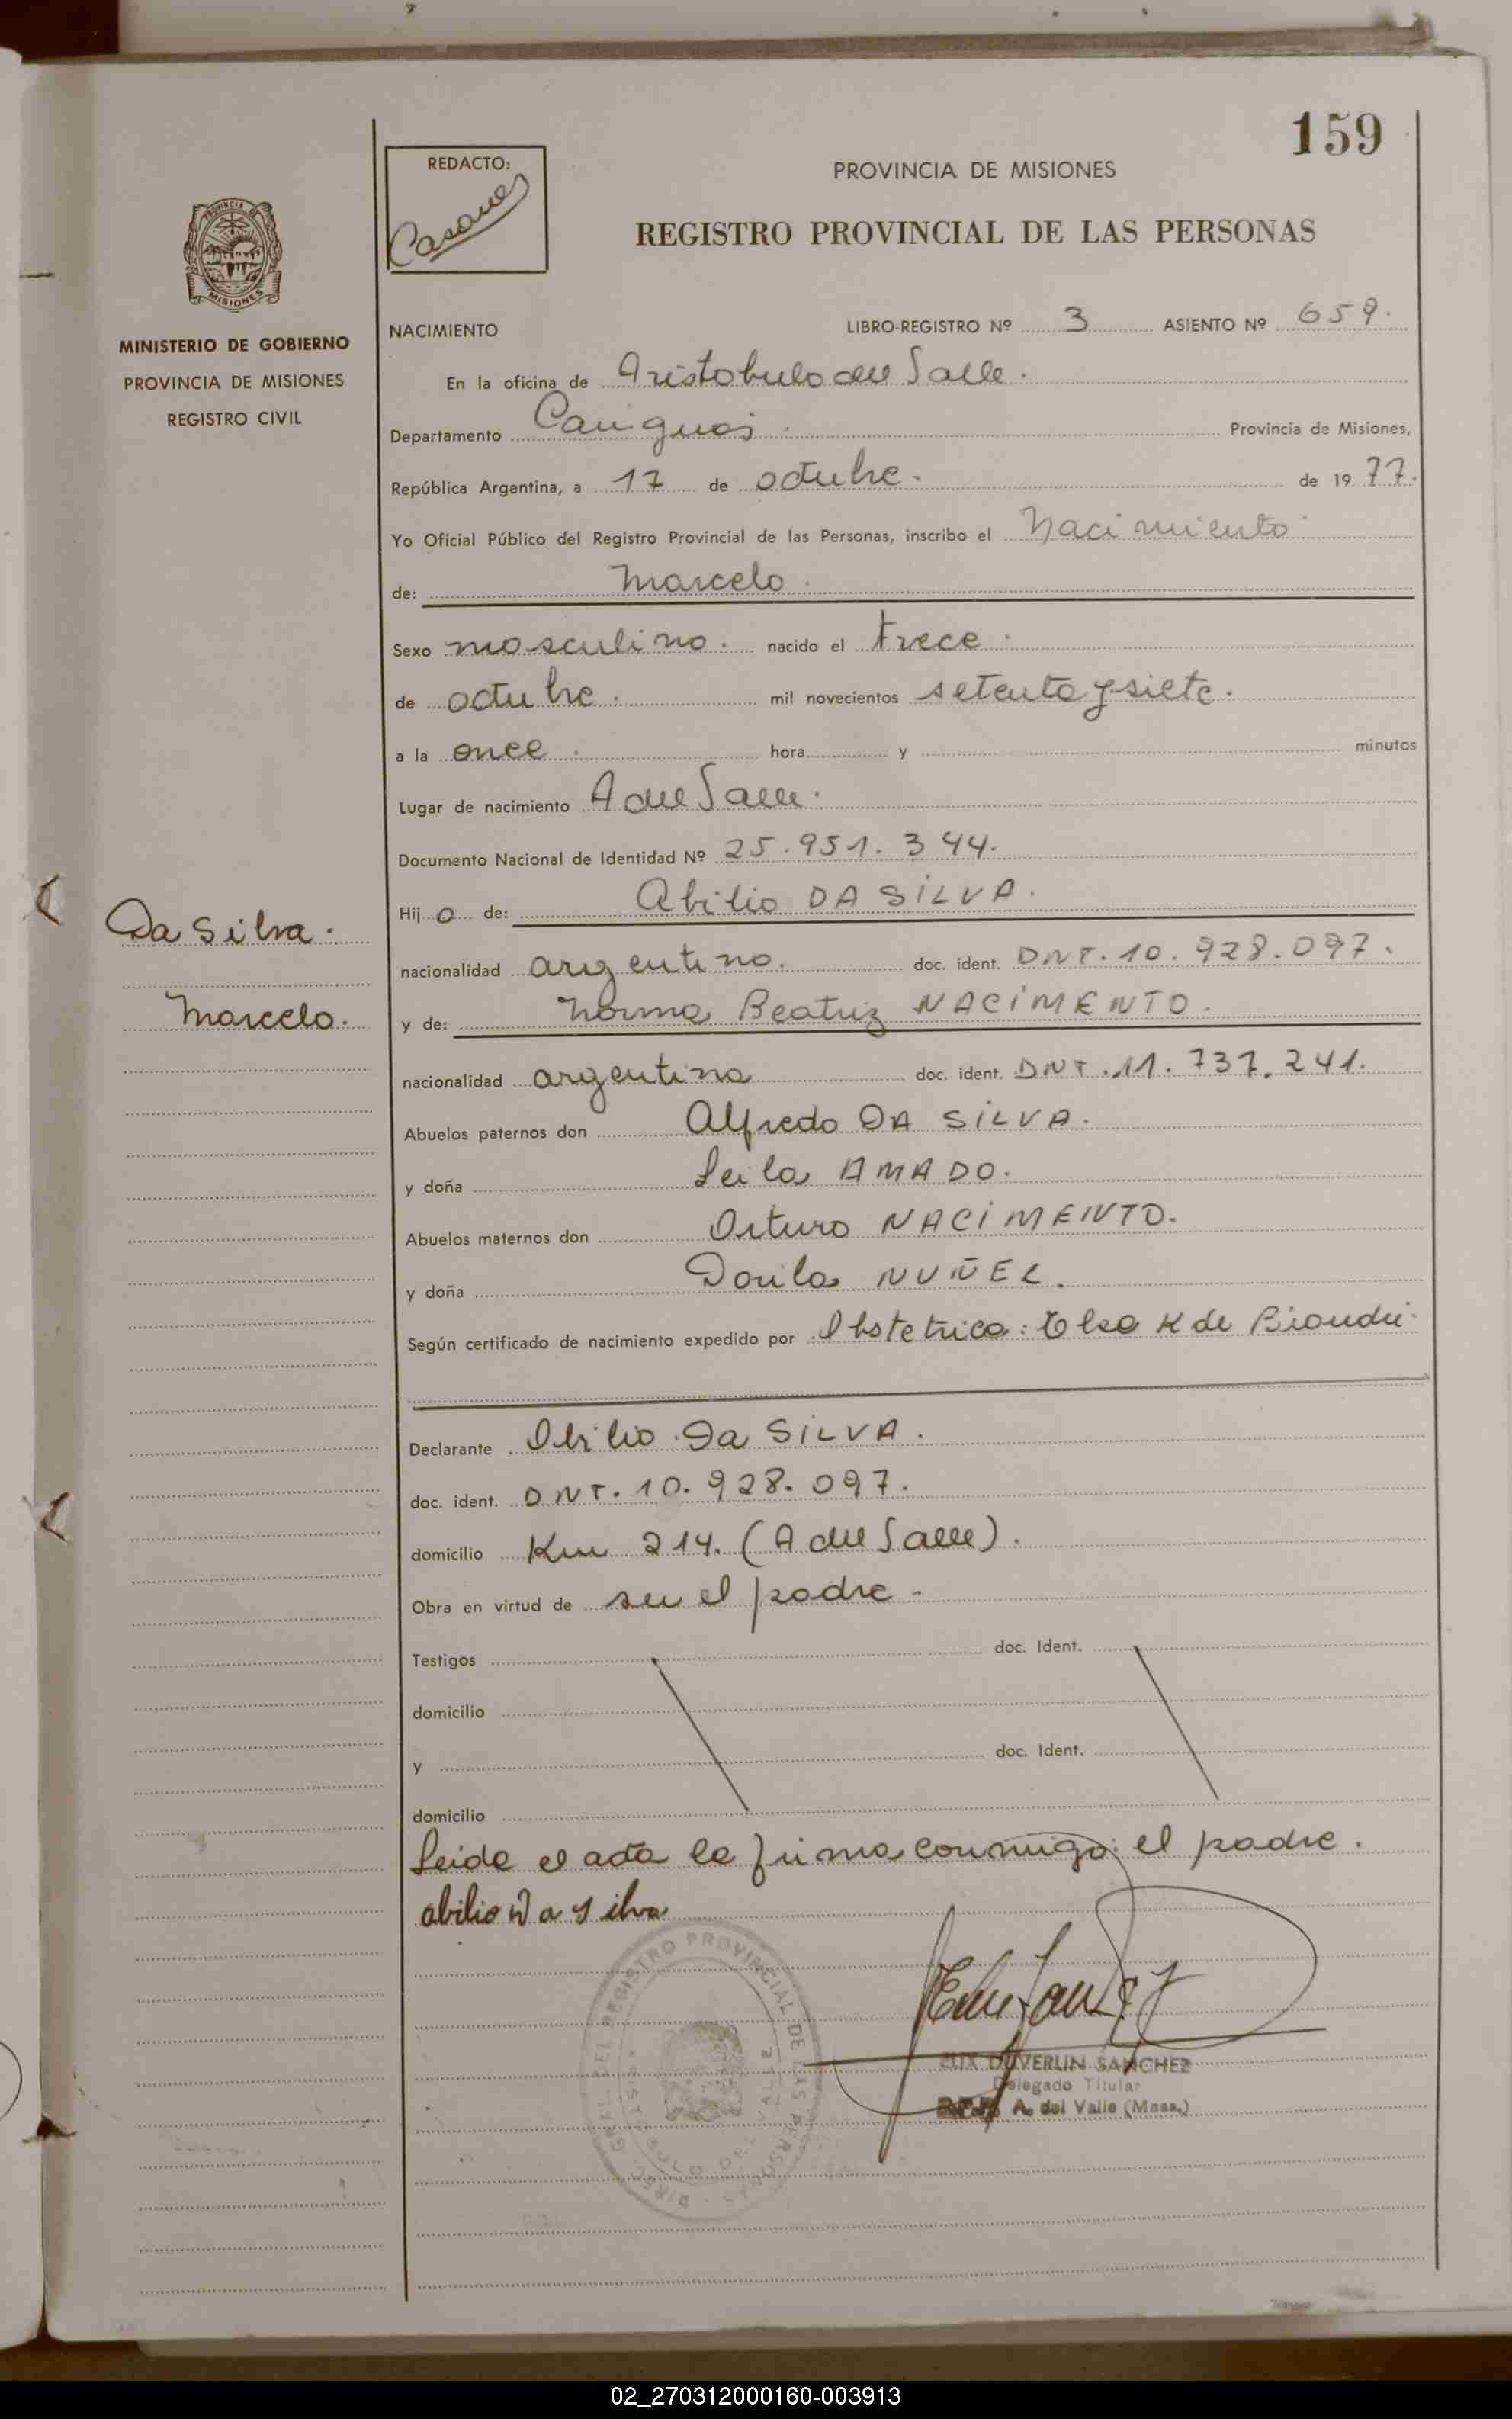 159
REDACTO:
Casares
PROVINCIA DE MISIONES
REGISTRO PROVINCIAL DE LAS PERSONAS
PROVINCIA DE
MISIONES
MINISTERIO DE GOBIERNO
PROVINCIA DE MISIONES
REGISTRO CIVIL
NACIMIENTO LIBRO-REGISTRO Nº 3 ASIENTO Nº 659.
En la oficina de Aristobulo del Valle.
Departamento Cainguas. Provincia de Misiones,
República Argentina, a 17 de octubre. de 19 77.
Yo Oficial Público del Registro Provincial de las Personas, inscribo el Nacimiento
de: Marcelo.
Sexo masculino. nacido el trece.
de octubre. mil novecientos setenta y siete.
a la once. hora y minutos
Lugar de nacimiento A del Valle.
Documento Nacional de Identidad Nº 25.951.344.
Hij o de: Abilio DA SILVA.
Da Silva.
nacionalidad argentino. doc. ident. DNI. 10.928.097.
Marcelo.
y de: Norma Beatriz NACIMENTO.
nacionalidad argentina doc. ident. DNI. 11.737.241.
Abuelos paternos don Alfredo DA SILVA.
y doña Leila AMADO.
Abuelos maternos don Arturo NACIMENTO.
y doña Dorila NUÑEZ.
Según certificado de nacimiento expedido por Obstetrica: Elsa K de
Declarante Abilio Da SILVA.
doc. ident. DNI. 10.928.097.
domicilio Km 214. (A del Valle).
Obra en virtud de ser el padre.
Testigos doc. Ident.
domicilio
y doc. Ident.
domicilio
Leida el acta la firma conmigo: el padre.
abilio Da Silva
DIREC. GRAL. DEL REGISTRO PROVINCIAL DE LAS PERSONAS
DUVERLIN SANCHEZ
Delegado Titular
A. del Valle (Mnes.)
02_270312000160-003913